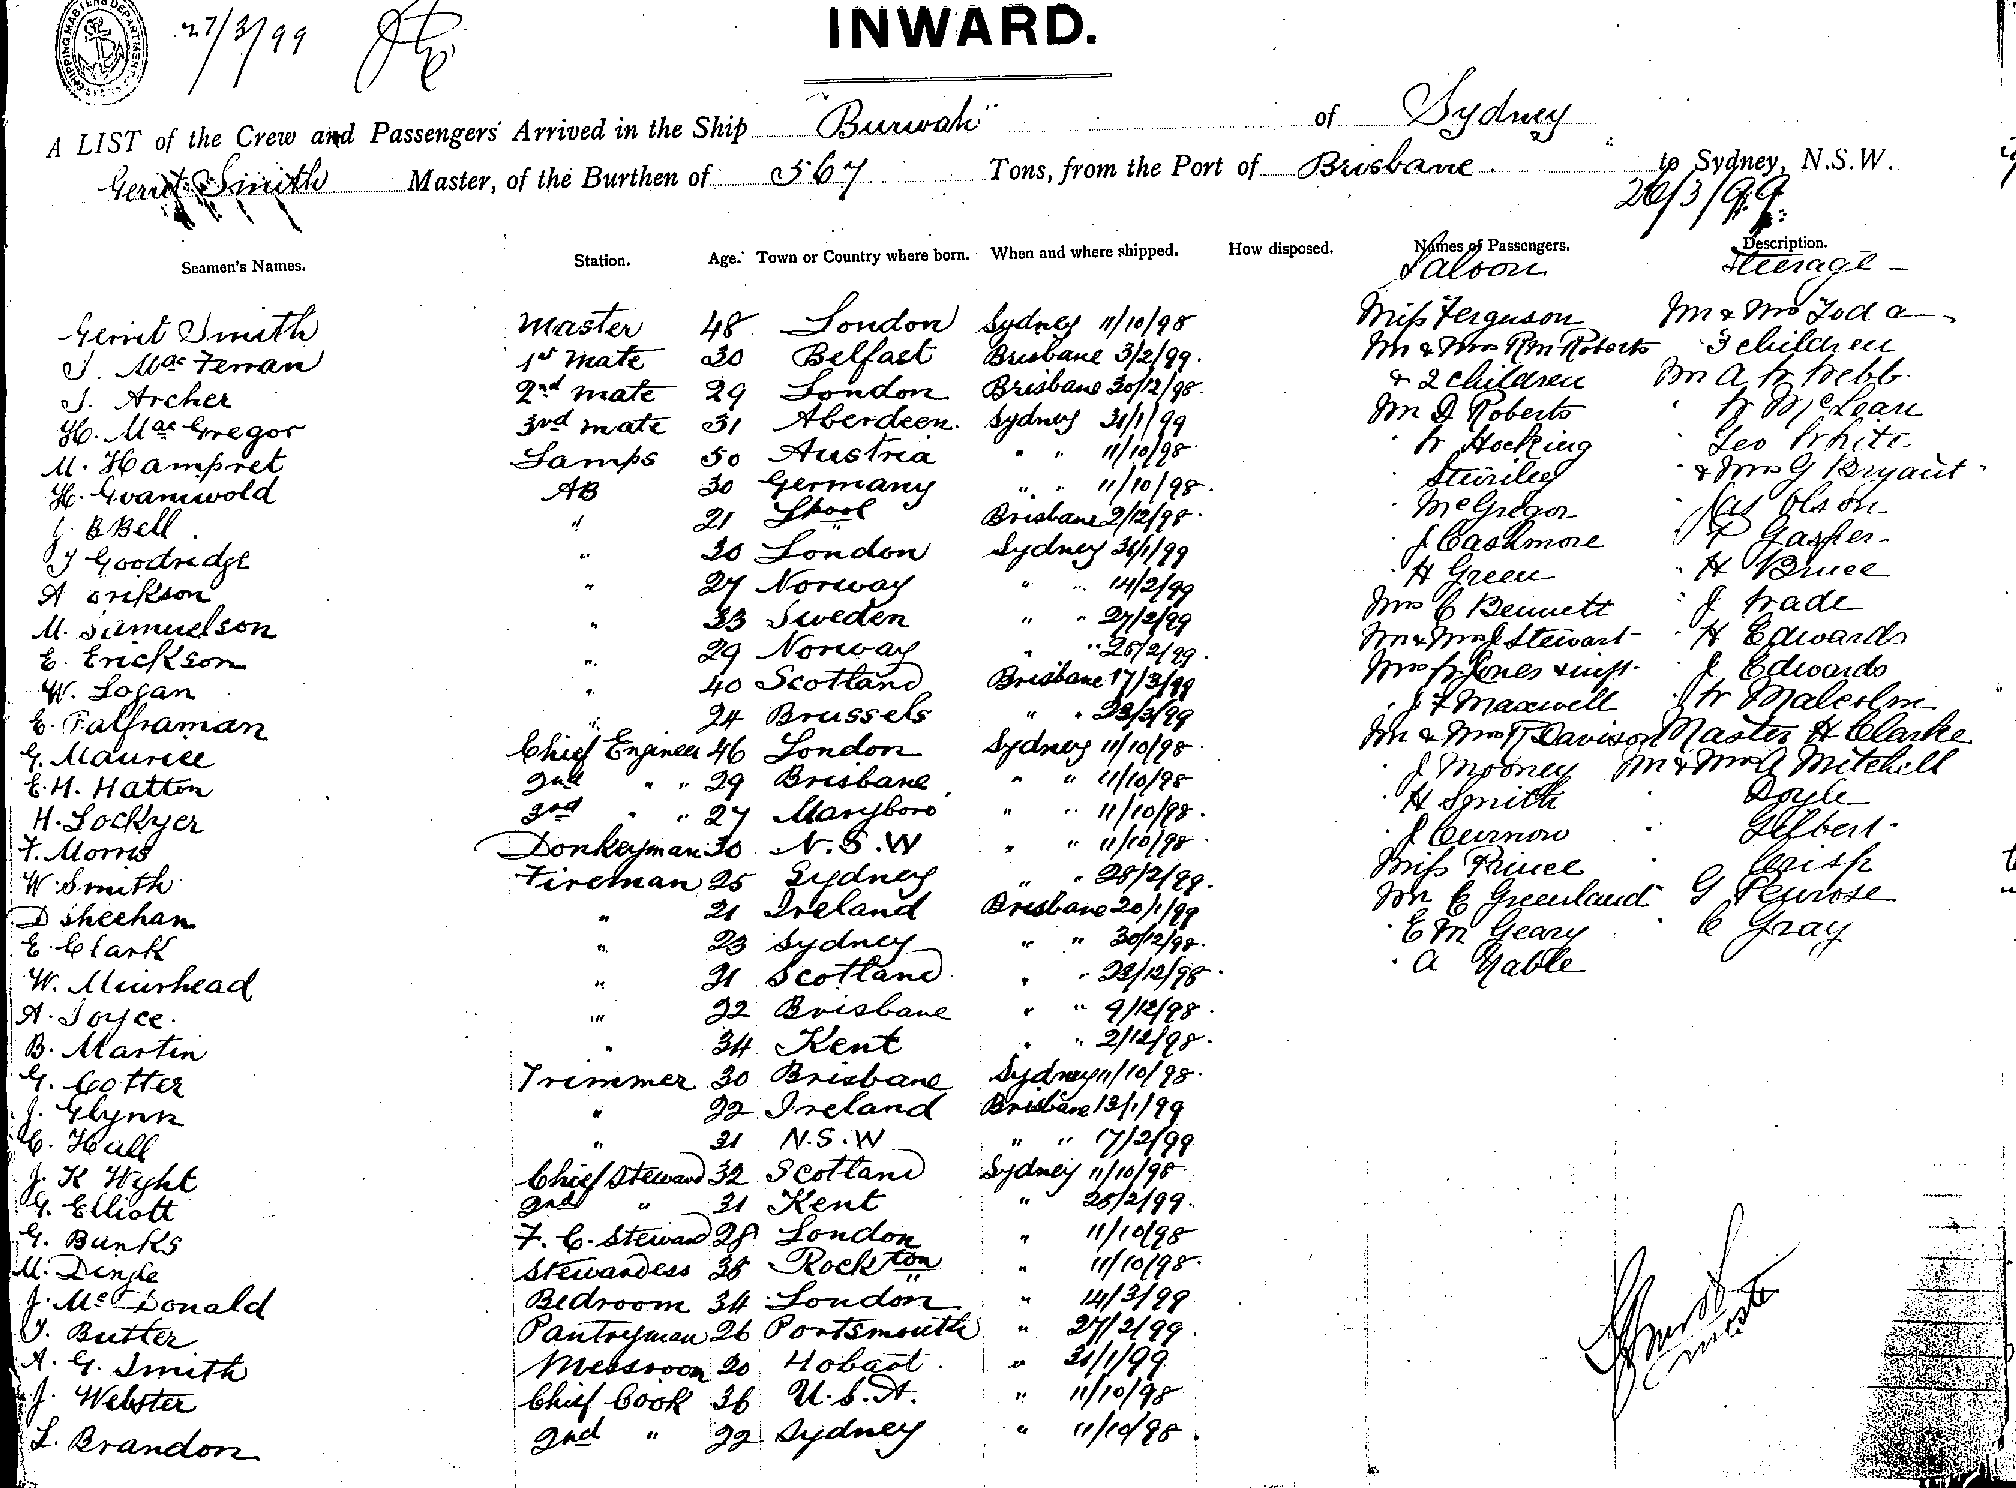 27/3/99
INWARD.
A LIST of the Crew and Passengers Arrived in the Ship "Burwah" of Sydney
Gerrit Smith Master, of the Burthen of 567 Tons, from the Port of Brisbane to Sydney, N.S.W.
26/3/99
Seamen's Names. Station. Age. Town or Country where born. When and where shipped. How disposed. Names of Passengers. Description.
Saloon Steerage -
Gerrit Smith Master 48 London Sydney 11/10/98 Miss Ferguson Mr & Mrs Tod a
J. MacFerran 1st Mate 30 Belfast Brisbane 3/2/99. Mr & Mrs R.M Roberts 3 children
J. Archer 2nd Mate 29 London Brisbane 30/12/98. & 2 children Mr A W Webb.
H. MacGregor 3rd Mate 31 Aberdeen. Sydney 31/1/99 Mr D Roberts " W McLean
M. Hampret Lamps 50 Austria " " 11/10/98 " W Hocking " Geo White
H. Gramwold AB 30 Germany " " 11/10/98. " " & Mrs G Bryant
J. B Bell " 21 Lpool Brisbane 2/12/98. " McGregor " Jas Olson
T Goodridge " 30 London Sydney 31/1/99 " J Cashmore " F Gasper
A Erikson " 27 Norway " " 14/2/99 " H Green " H Bruce
M. Samuelson " 33 Sweden " " 27/2/99 Mrs C Bennett " J Wade
E. Erickson " 29 Norway " " 28/2/99. Mr & Mrs J Stewart " H Edwards
W. Logan " 40 Scotland Brisbane 17/3/99 Mrs W Jones & inft. " J Edwards
E. Palframan " 24 Brussels " " 23/3/99 " J F Maxwell " W Malcolm
G. Maurice Chief Engineer 46 London Sydney 11/10/98. Mr & Mrs T Davison Master H Clarke
E. H. Hatton 2nd " " 29 Brisbane " " 11/10/98 " J Mooney Mr & Mrs A Mitchell
H. Lockyer 3rd " " 27 Maryboro " " 11/10/98. " H Smith Doyle
F. Morris Donkeyman 30 N.S.W " " 11/10/98 " J Curnow " Gilbert
W Smith Fireman 25 Sydney " " 28/2/99. Miss Prince Crisp
D Sheehan " 21 Ireland Brisbane 20/1/99 Mr E Greenland G Penrose
E. Clark " 23 Sydney " " 30/12/98. " E M Geary " C Gray
W. Muirhead " 21 Scotland " " 23/12/98. " A Gable
A. Joyce. " 22 Brisbane " " 9/12/98.
B. Martin " 34 Kent " " 2/12/98.
G. Cotter Trimmer 30 Brisbane Sydney 11/10/98.
J. Glynn " 22 Ireland Brisbane 13/1/99
C. Hall " 21 N.S.W " " 7/2/99
J. K Wyht Chief Steward 32 Scotland Sydney 11/10/98
G. Elliott 2nd " 31 Kent " 28/2/99.
G. Bunks F. C. Steward 28 London " 11/10/98
M. Dingle Stewardess 35 Rockton " 11/10/98.
J. McDonald Bedroom 34 London " 14/3/99
T. Butter Pantryman 26 Portsmouth " 27/2/99.
A. G. Smith Messroom 20 Hobart. " 31/1/99
J. Webster Chief Cook 36 U.S.A. " 11/10/98
L. Brandon 2nd " 22 Sydney " 11/10/98.